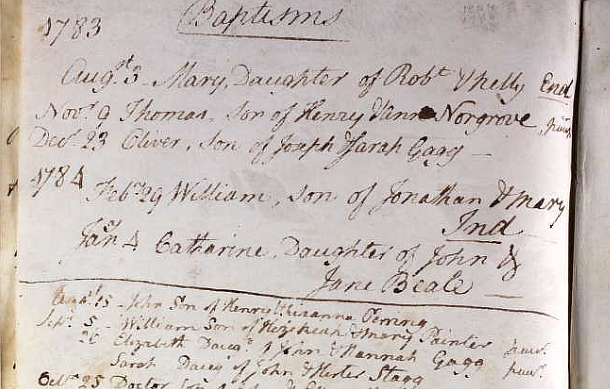 1783 Baptisms
Augst 3 - Mary, Daughter of Robt & Nelly End
Novr 9 Thomas, Son of Henry & Ann Norgrove
Decr 23 Oliver, Son of Joseph & Sarah Gagg -
1784
Febr 29 William, Son of Jonathan & Mary
Ind
Jany 4 Catharine, Daughter of John &
Jane Beale -
Augst 15 - John Son of Henry & Susanna
Sept 5 - William Son of Hezekiah & Mary Painter
26 Elizabeth of John & Hannah Gagg
Sarah of John & Stagg
Octr 25